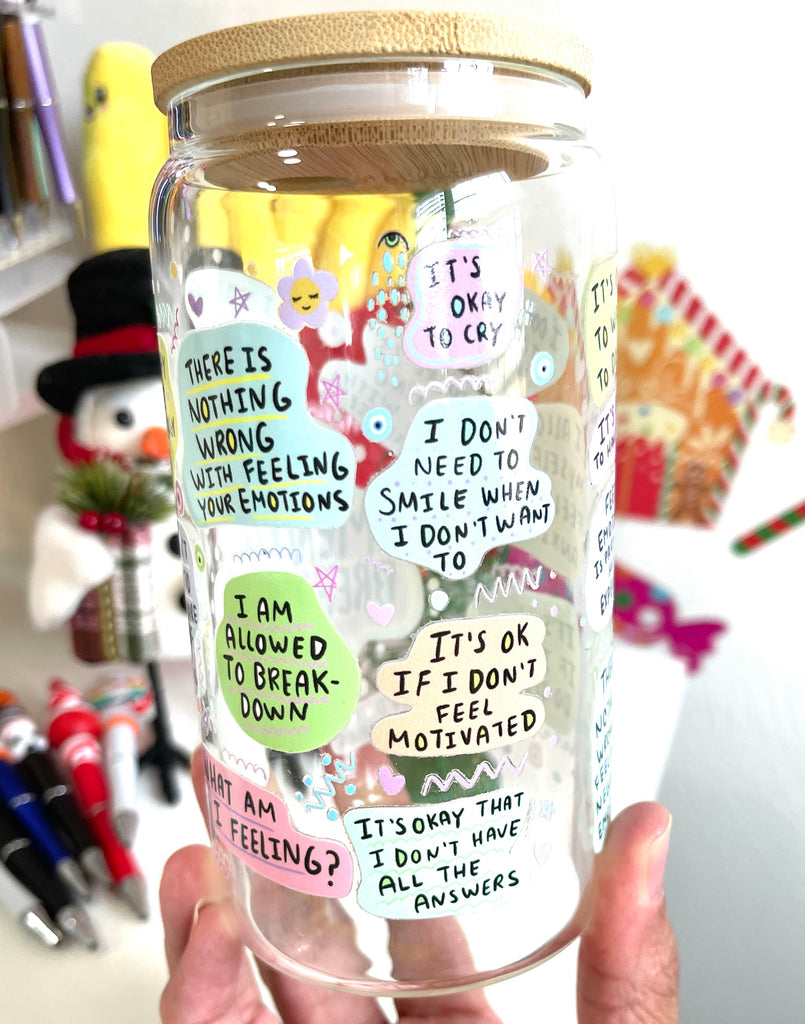 IT'S
OKAY
TO CRY
THERE IS
NOTHING
WRONG
WITH FEELING
YOUR EMOTIONS
I DON'T
NEED TO
SMILE WHEN
I DON'T WANT
TO
I AM
ALLOWED
TO BREAK-
DOWN
IT'S OK
IF I DON'T
FEEL
MOTIVATED
WHAT AM
I FEELING?
IT'S OKAY THAT
I DON'T HAVE
ALL THE
ANSWERS
IT'S
TO
TO
IT'S
TO